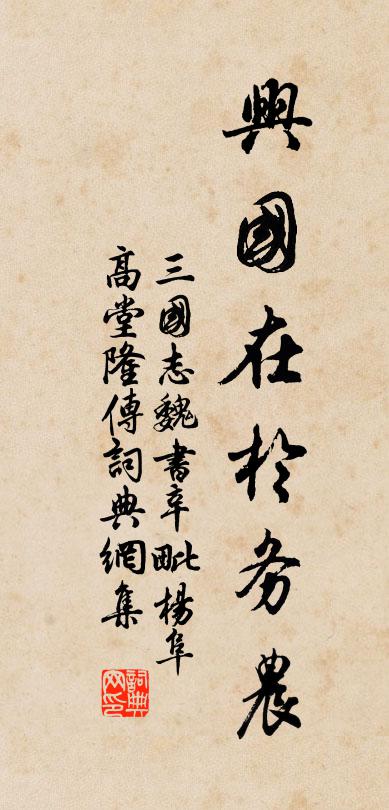 興國在於务農
三國志魏書辛毗楊阜
高堂隆傳詞典網集
詞典网印